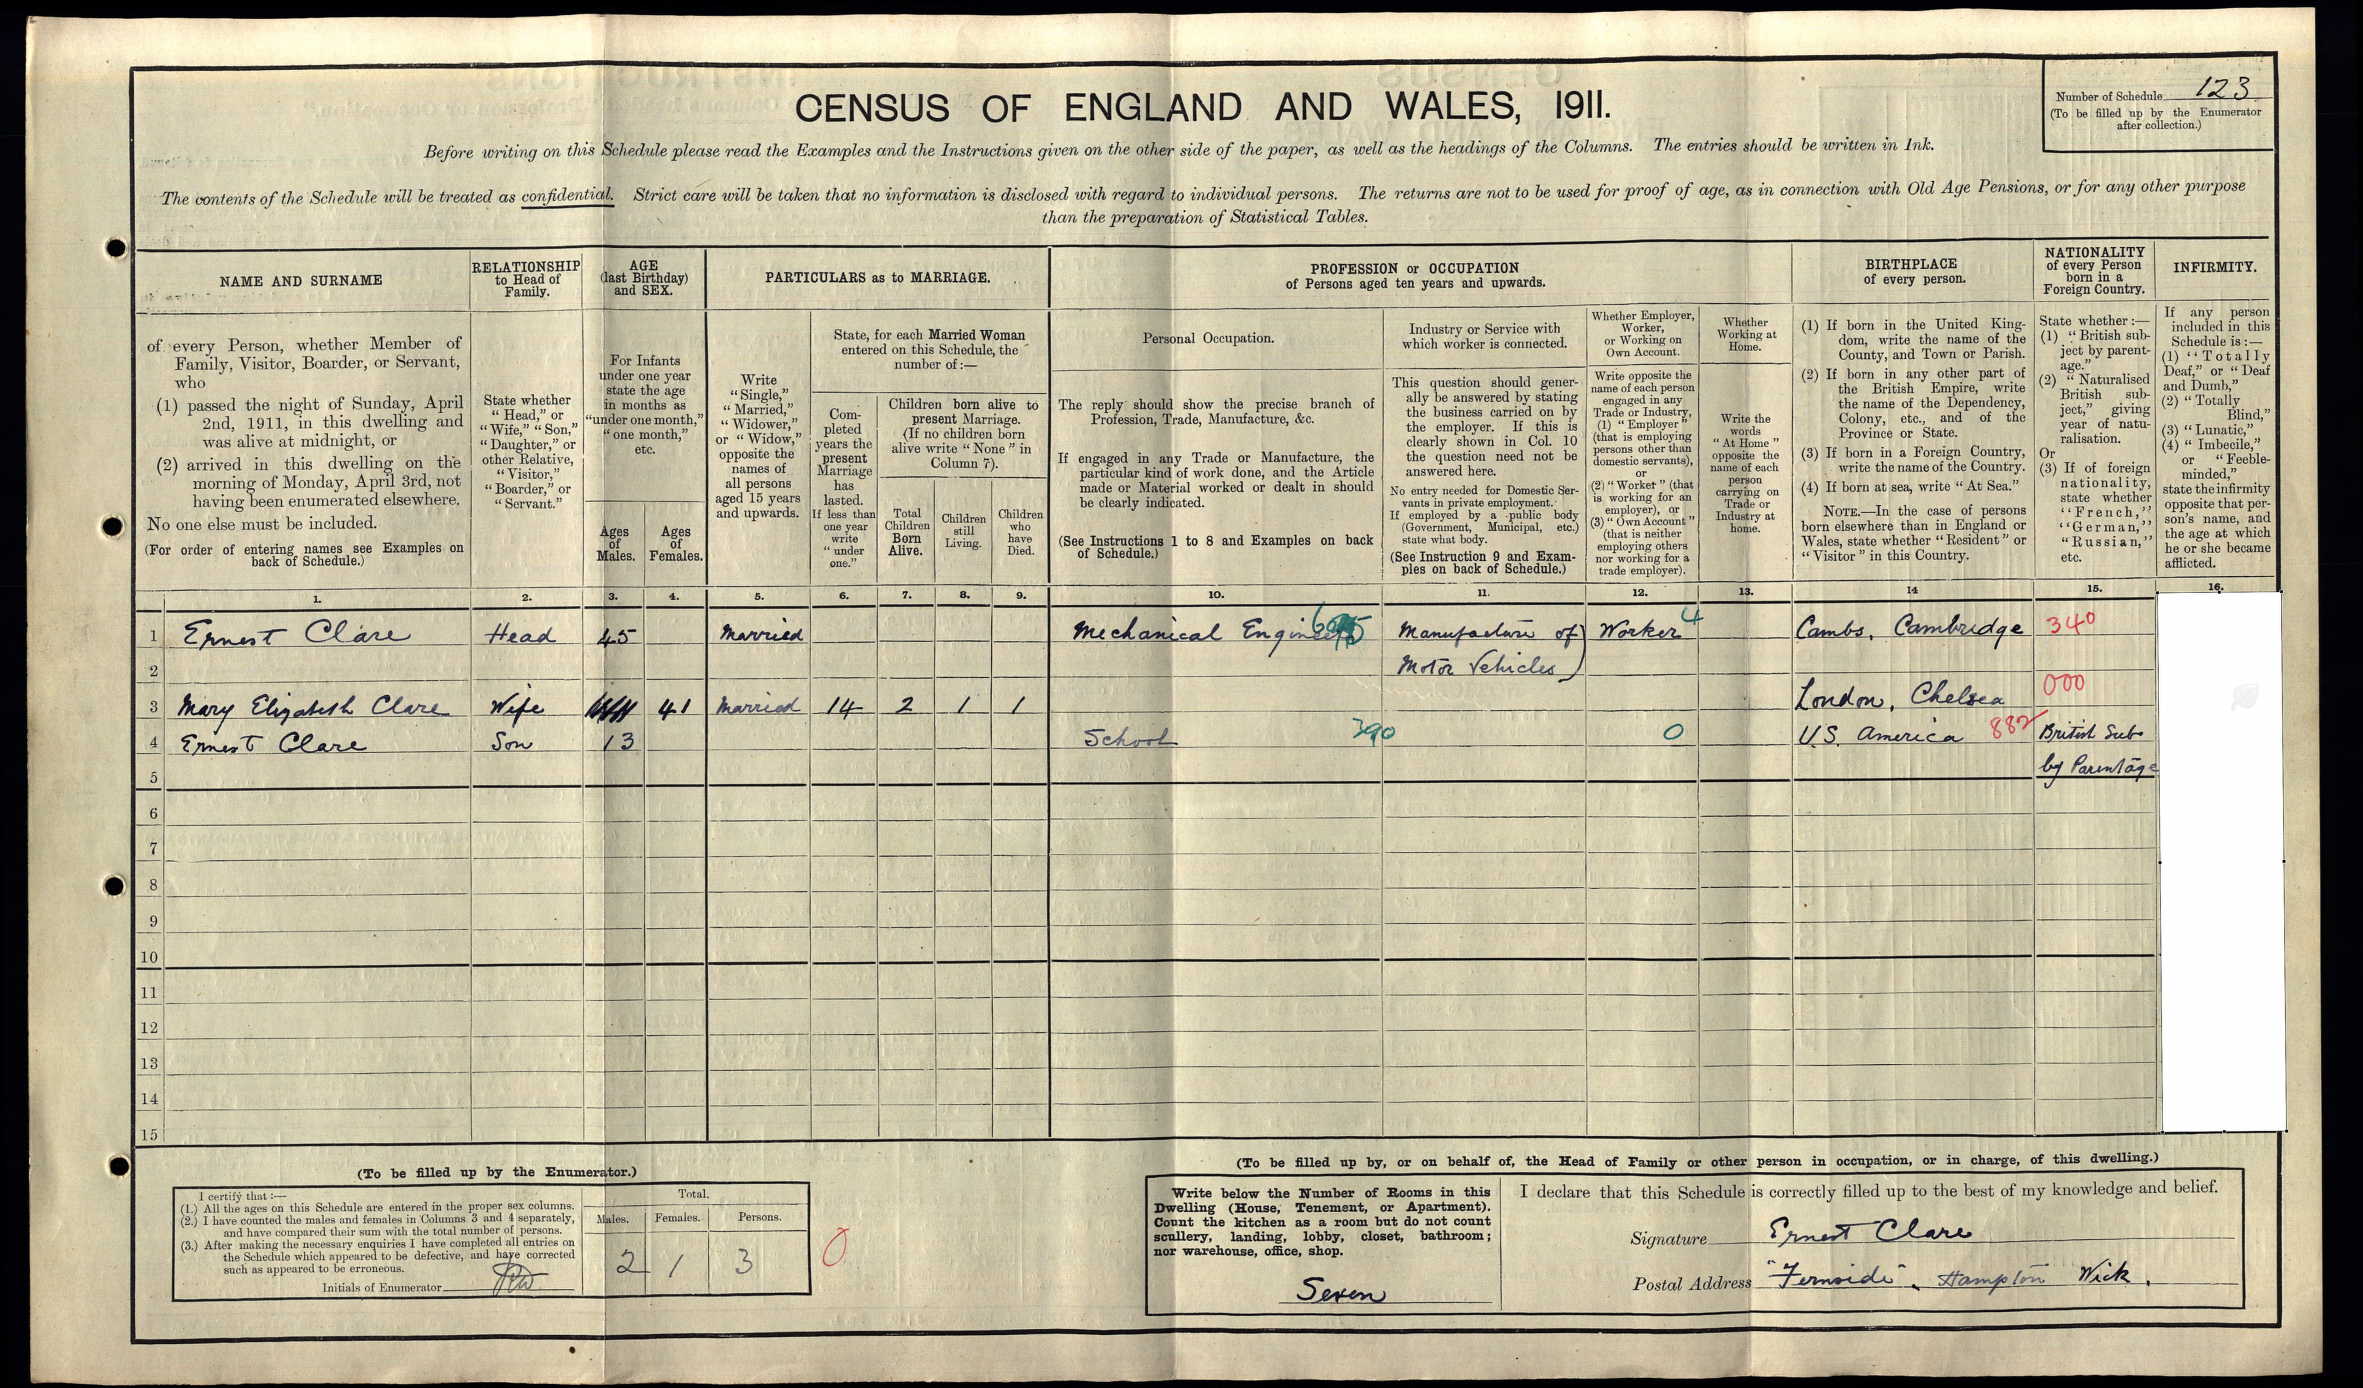 CENSUS OF ENGLAND AND WALES, 1911.
Number of Schedule 123
(To be filled up by the Enumerator
after collection.)
Before writing on this Schedule please read the Examples and the Instructions given on the other side of the paper, as well as the headings of the Columns. The entries should be written in Ink.
The contents of the Schedule will be treated as confidential. Strict care will be taken that no information is disclosed with regard to individual persons. The returns are not to be used for proof of age, as in connection with Old Age Pensions, or for any other purpose
than the preparation of Statistical Tables.
NAME AND SURNAME
RELATIONSHIP
to Head of
Family.
AGE
(last Birthday)
and SEX.
PARTICULARS as to MARRIAGE.
PROFESSION or OCCUPATION
of Persons aged ten years and upwards.
BIRTHPLACE
of every person.
NATIONALITY
of every Person
born in a
Foreign Country.
INFIRMITY.
of every Person, whether Member of
Family, Visitor, Boarder, or Servant,
who
(1) passed the night of Sunday, April
2nd, 1911, in this dwelling and
was alive at midnight, or
(2) arrived in this dwelling on the
morning of Monday, April 3rd, not
having been enumerated elsewhere.
No one else must be included.
(For order of entering names see Examples on
back of Schedule.)
State whether
"Head," or
"Wife," "Son,"
"Daughter," or
other Relative,
"Visitor,"
"Boarder," or
"Servant."
For Infants
under one year
state the age
in months as
"under one month,"
"one month,"
etc.
Ages
of
Males.
Ages
of
Females.
Write
"Single,"
"Married,"
"Widower,"
or "Widow,"
opposite the
names of
all persons
aged 15 years
and upwards.
State, for each Married Woman
entered on this Schedule, the
number of:—
Com-
pleted
years the
present
Marriage
has
lasted.
If less than
one year
write
"under
one."
Children born alive to
present Marriage.
(If no children born
alive write "None" in
Column 7).
Total
Children
Born
Alive.
Children
still
Living.
Children
who
have
Died.
Personal Occupation.
The reply should show the precise branch of
Profession, Trade, Manufacture, &c.
If engaged in any Trade or Manufacture, the
particular kind of work done, and the Article
made or Material worked or dealt in should
be clearly indicated.
(See Instructions 1 to 8 and Examples on back
of Schedule.)
Industry or Service with
which worker is connected.
This question should gener-
ally be answered by stating
the business carried on by
the employer. If this is
clearly shown in Col. 10
the question need not be
answered here.
No entry needed for Domestic Ser-
vants in private employment.
If employed by a public body
(Government, Municipal, etc.)
state what body.
(See Instruction 9 and Exam-
ples on back of Schedule.)
Whether Employer,
Worker,
or Working on
Own Account.
Write opposite the
name of each person
engaged in any
Trade or Industry,
(1) "Employer"
(that is employing
persons other than
domestic servants),
or
(2) "Worker" (that
is working for an
employer), or
(3) "Own Account"
(that is neither
employing others
nor working for a
trade employer).
Whether
Working at
Home.
Write the
words
"At Home"
opposite the
name of each
person
carrying on
Trade or
Industry at
home.
(1) If born in the United King-
dom, write the name of the
County, and Town or Parish.
(2) If born in any other part of
the British Empire, write
the name of the Dependency,
Colony, etc., and of the
Province or State.
(3) If born in a Foreign Country,
write the name of the Country.
(4) If born at sea, write "At Sea."
NOTE.—In the case of persons
born elsewhere than in England or
Wales, state whether "Resident" or
"Visitor" in this Country.
State whether:—
(1) "British sub-
ject by parent-
age."
(2) "Naturalised
British sub-
ject," giving
year of natu-
ralisation.
Or
(3) If of foreign
nationality,
state whether
"French,"
"German,"
"Russian,"
etc.
If any person
included in this
Schedule is:—
(1) "Totally
Deaf," or "Deaf
and Dumb,"
(2) "Totally
Blind,"
(3) "Lunatic,"
(4) "Imbecile,"
or "Feeble-
minded,"
state the infirmity
opposite that per-
son's name, and
the age at which
he or she became
afflicted.
1. 2. 3. 4. 5. 6. 7. 8. 9. 10. 11. 12. 13. 14 15. 16.
1 Ernest Clare Head 45 Married Mechanical Engineer Manufacture of Worker 4 Cambs. Cambridge 340
2 Motor Vehicles
3 Mary Elizabeth Clare Wife 41 Married 14 2 1 1 London, Chelsea 000
4 Ernest Clare Son 13 School 390 0 U.S. America 882 British Sub
5 by Parentage
6
7
8
9
10
11
12
13
14
15
(To be filled up by the Enumerator.)
I certify that:—
(1.) All the ages on this Schedule are entered in the proper sex columns.
(2.) I have counted the males and females in Columns 3 and 4 separately,
and have compared their sum with the total number of persons.
(3.) After making the necessary enquiries I have completed all entries on
the Schedule which appeared to be defective, and have corrected
such as appeared to be erroneous.
Initials of Enumerator
Total.
Males. Females. Persons.
2 1 3
0
(To be filled up by, or on behalf of, the Head of Family or other person in occupation, or in charge, of this dwelling.)
Write below the Number of Rooms in this
Dwelling (House, Tenement, or Apartment).
Count the kitchen as a room but do not count
scullery, landing, lobby, closet, bathroom;
nor warehouse, office, shop.
Seven
I declare that this Schedule is correctly filled up to the best of my knowledge and belief.
Signature Ernest Clare
Postal Address "Fernside", Hampton Wick.